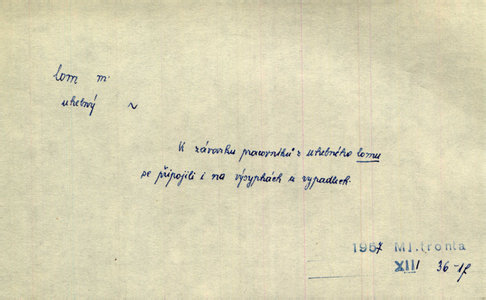 lom m.
uhelný ~
K závazku pracovníků z uhelného lomu
se připojili i na výsypkách u
1957 Ml.fronta
XIII 36-1